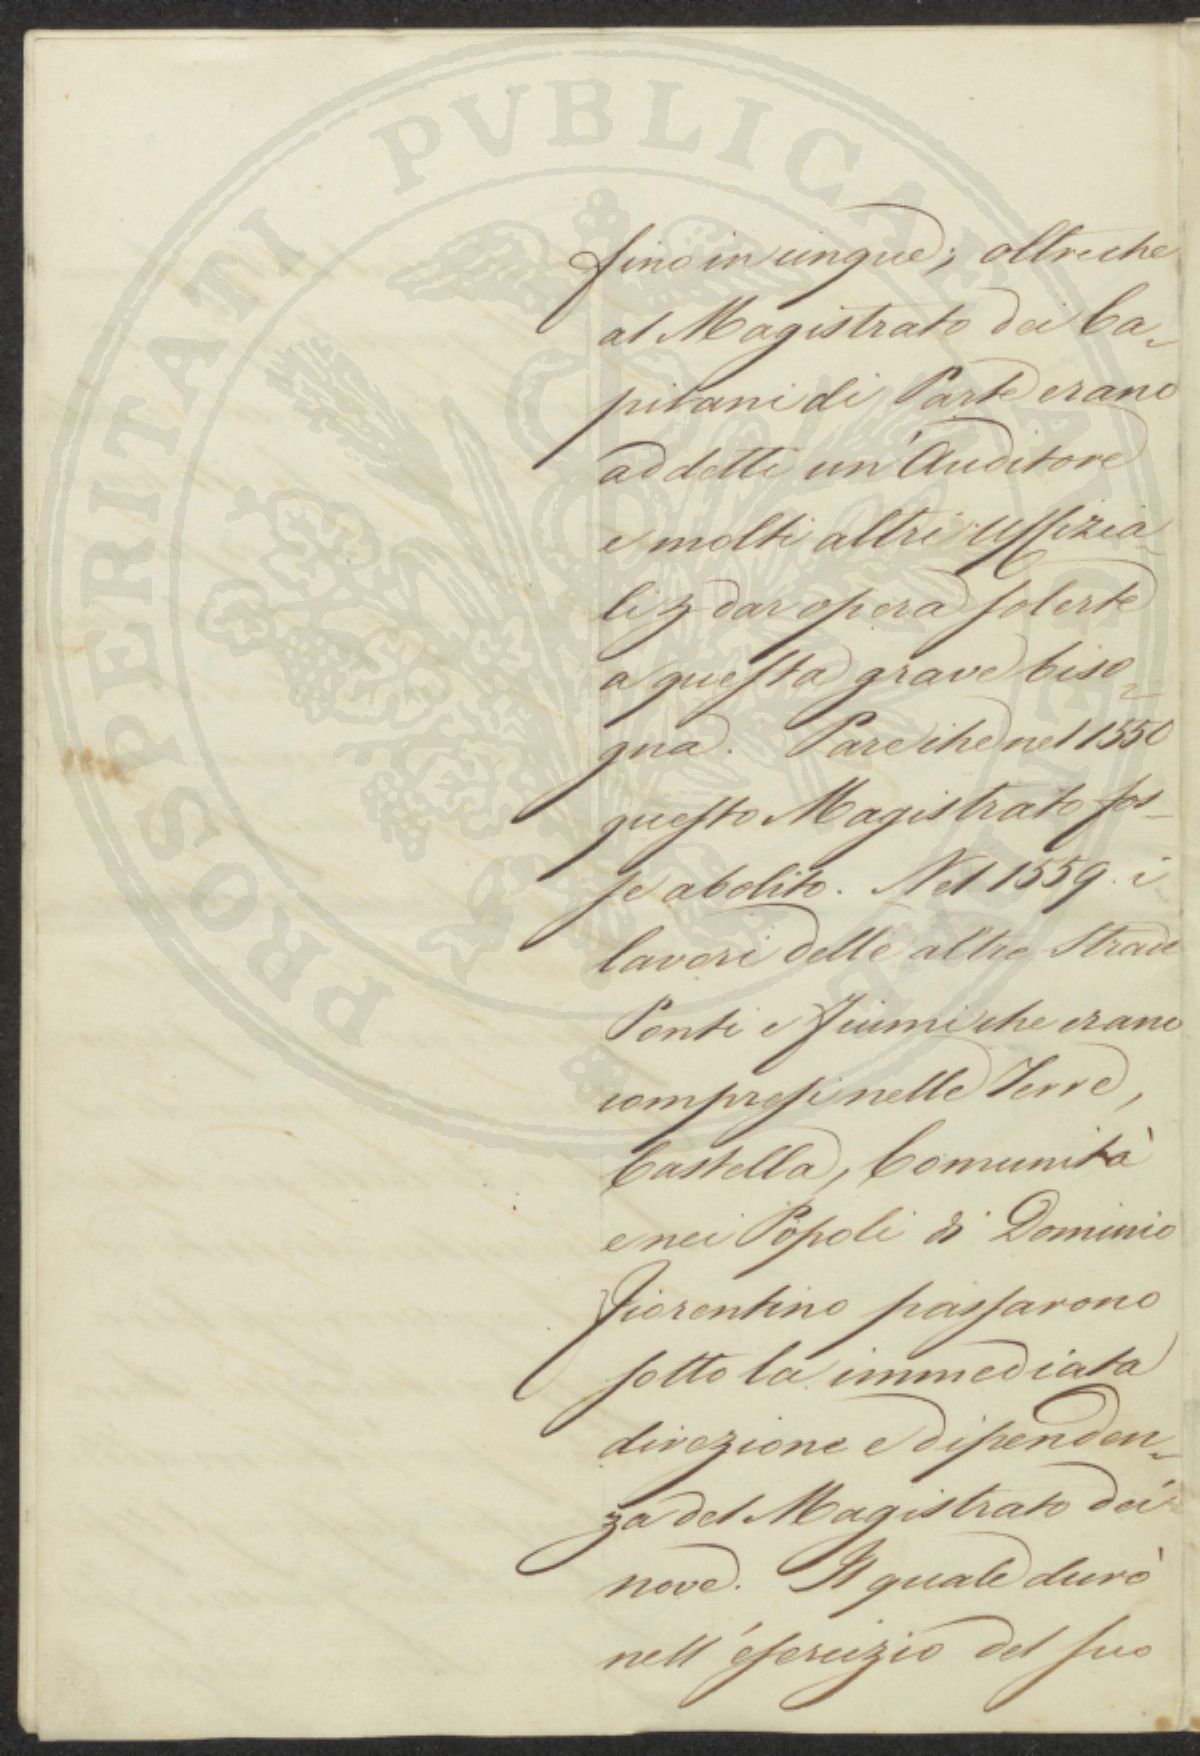 PROSPERITATI PVBLICAE
fino in cinque; oltreche
al Magistrato dei Ca-
pitani di Parte erano
addetti un'Auditore
e molti altri Uffizia-
li p dar opera solerte
a questa grave biso-
gna. Pare che nel 1550
questo Magistrato fos-
se abolito. Nel 1559. i
lavori delle altre Strade
Ponti e Fiumi che erano
compresi nelle Terre,
Castella, Comunità
e nei Popoli di Dominio
Fiorentino passarono
sotto la immediata
direzione e dipenden-
za del Magistrato dei
nove. Il quale durò
nell'esercizio del suo